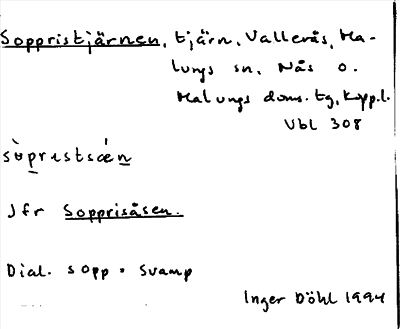 Soppristjärnen, tjärn, Vallerås, Ma-
lungs sn, Nås o.
Malungs doms. tg, Kopp.l.
Ubl 308
sòprɩstsǽn
Jfr Sopprisåsen.
Dial. sopp = svamp
Inger Döhl 1994